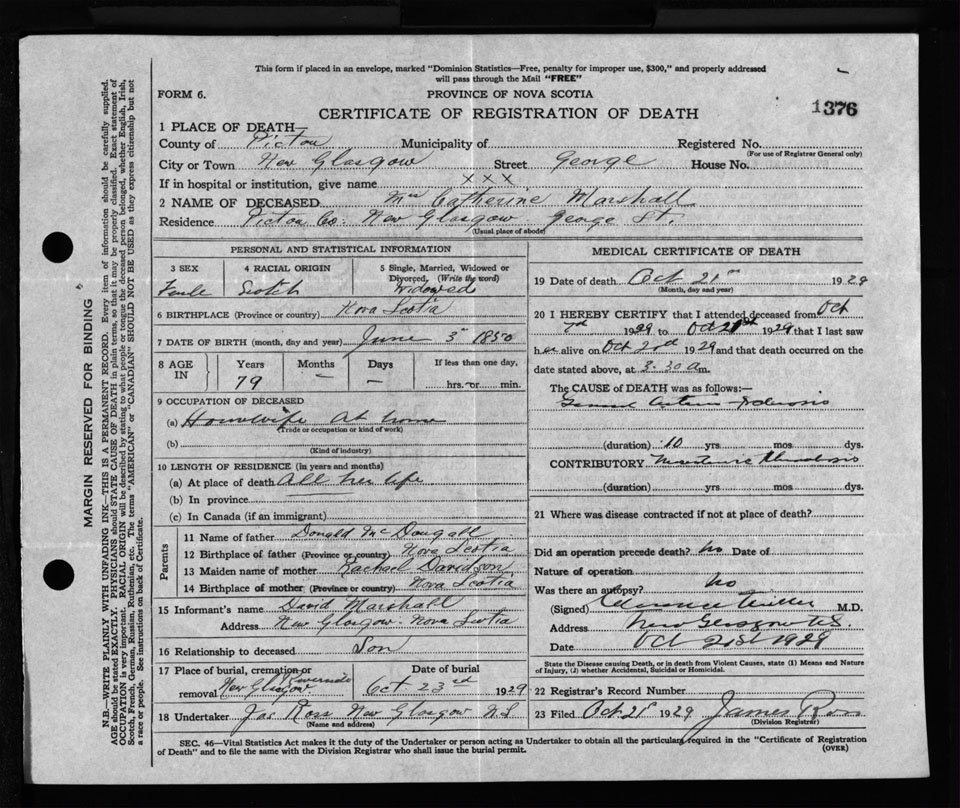 This form if placed in an envelope, marked "Dominion Statistics—Free, penalty for improper use, $300," and properly addressed
will pass through the Mail "FREE"
FORM 6.
PROVINCE OF NOVA SCOTIA
1376
CERTIFICATE OF REGISTRATION OF DEATH
1 PLACE OF DEATH—
County of Picton Municipality of Registered No.
(For use of Registrar General only)
City or Town New Glasgow Street George House No.
If in hospital or institution, give name x x x
2 NAME OF DECEASED Mrs Catherine Marshall
Residence Picton Co. New Glasgow George St.
(Usual place of abode)
PERSONAL AND STATISTICAL INFORMATION
3 SEX 4 RACIAL ORIGIN 5 Single, Married, Widowed or
Divorced, (Write the word)
Female Scotch Widowed
6 BIRTHPLACE (Province or country) Nova Scotia
7 DATE OF BIRTH (month, day and year) June 3rd 1850
8 AGE IN Years Months Days If less than one day,
79 — — hrs. or min.
9 OCCUPATION OF DECEASED
(a) Housewife At home
(Trade or occupation or kind of work)
(b)
(Kind of industry)
10 LENGTH OF RESIDENCE (in years and months)
(a) At place of death All her life
(b) In province
(c) In Canada (if an immigrant)
Parents
11 Name of father Donald McDougall
12 Birthplace of father (Province or country) Nova Scotia
13 Maiden name of mother Rachael Davidson
14 Birthplace of mother (Province or country) Nova Scotia
15 Informant's name David Marshall
Address New Glasgow. Nova Scotia
16 Relationship to deceased Son
17 Place of burial, cremation or Date of burial
Riverside
removal New Glasgow Oct 23rd 1929
18 Undertaker Jas Ross New Glasgow N S
(Name and address)
MEDICAL CERTIFICATE OF DEATH
19 Date of death Oct 21st 1929
(Month, day and year)
20 I HEREBY CERTIFY that I attended deceased from Oct
7th 1929 to Oct 21st 1929 that I last saw
her alive on Oct 1929 and that death occurred on the
date stated above, at 3.30 am.
The CAUSE OF DEATH was as follows:—
General Arterio-sclerosis
(duration) 10 yrs mos dys.
CONTRIBUTORY
(duration) yrs mos dys.
21 Where was disease contracted if not at place of death?
Did an operation precede death? No Date of
Nature of operation
Was there an autopsy? No
(Signed) Clarence Miller M.D.
Address New Glasgow N.S.
Date Oct 21st 1929
State the Disease causing Death, or in death from Violent Causes, state (1) Means and Nature
of Injury, (2) whether Accidental, Suicidal or Homicidal.
22 Registrar's Record Number
23 Filed Oct 21st 1929 James Ross
(Division Registrar)
SEC. 46—Vital Statistics Act makes it the duty of the Undertaker or person acting as Undertaker to obtain all the particulars required in the "Certificate of Registration
of Death" and to file the same with the Division Registrar who shall issue the burial permit. (OVER)
MARGIN RESERVED FOR BINDING
N.B.—WRITE PLAINLY WITH UNFADING INK—THIS IS A PERMANENT RECORD. Every item of information should be carefully supplied.
AGE should be stated EXACTLY. PHYSICIANS should STATE CAUSE OF DEATH in plain terms, so that it may be properly classified. Exact statement of
OCCUPATION is very important. RACIAL ORIGIN will be described by stating to what people or tongue the deceased person belonged, whether English, Irish,
Scotch, French, German, Russian, Ruthenian, etc. The terms "AMERICAN" or "CANADIAN" SHOULD NOT BE USED as they express citizenship but not
a race or people. See instructions on back of Certificate.